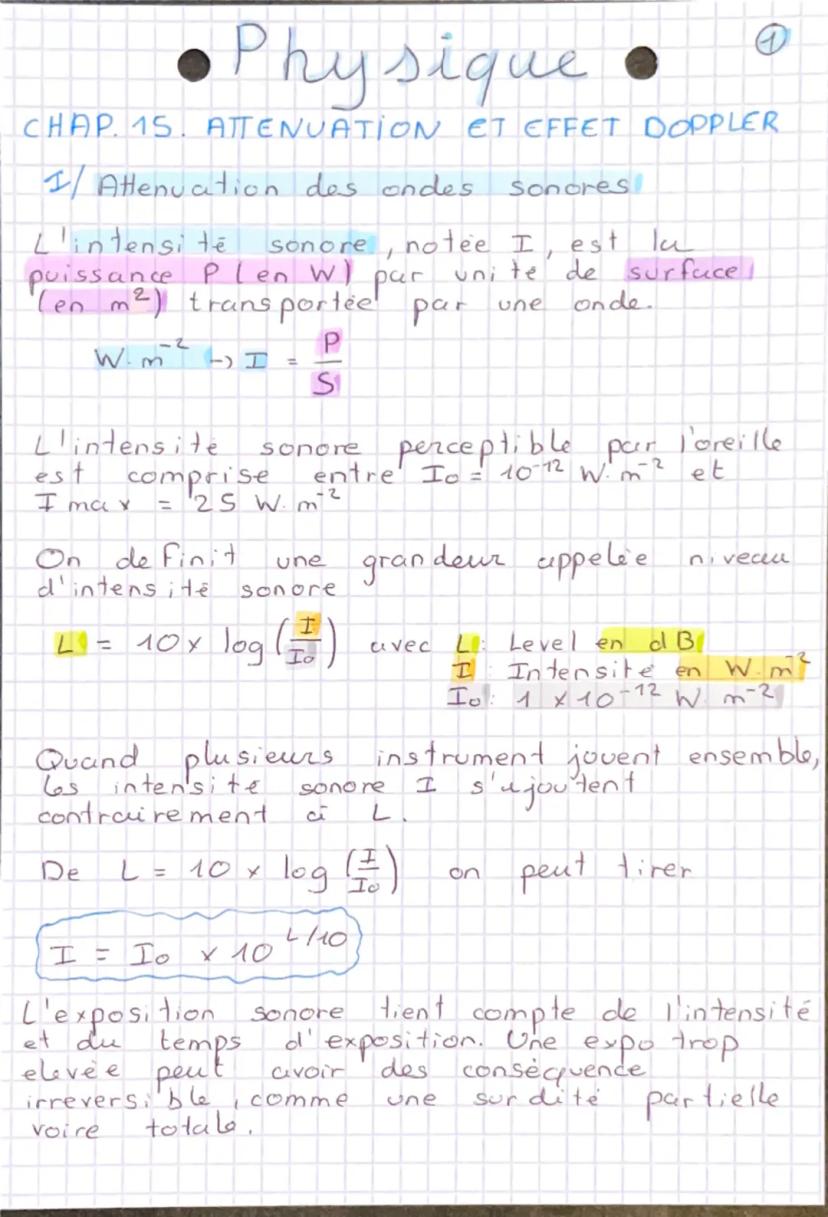 Physique
1
CHAP. 15. ATTENUATION ET EFFET DOPPLER
I/ Attenuation des ondes sonores
L'intensité sonore, notée I, est la
puissance P (en W) par unité de surface
(en m²) transportée par une onde.
W.m⁻² → I = P/S
L'intensité sonore perceptible par l'oreille
est comprise entre I₀ = 10⁻¹² W.m⁻² et
I max = 25 W.m⁻²
On définit une grandeur appelée niveau
d'intensité sonore
L = 10 × log (I/I₀) avec L : Level en dB
I : Intensité en W.m⁻²
I₀ : 1 × 10⁻¹² W.m⁻²
Quand plusieurs instrument jouent ensemble,
les intensité sonore I s'ajoutent
contrairement à L.
De L = 10 × log (I/I₀) on peut tirer
I = I₀ × 10^(L/10)
L'exposition sonore tient compte de l'intensité
et du temps d'exposition. Une expo trop
elevée peut avoir des conséquence
irreversible, comme une surdité partielle
voire totale.